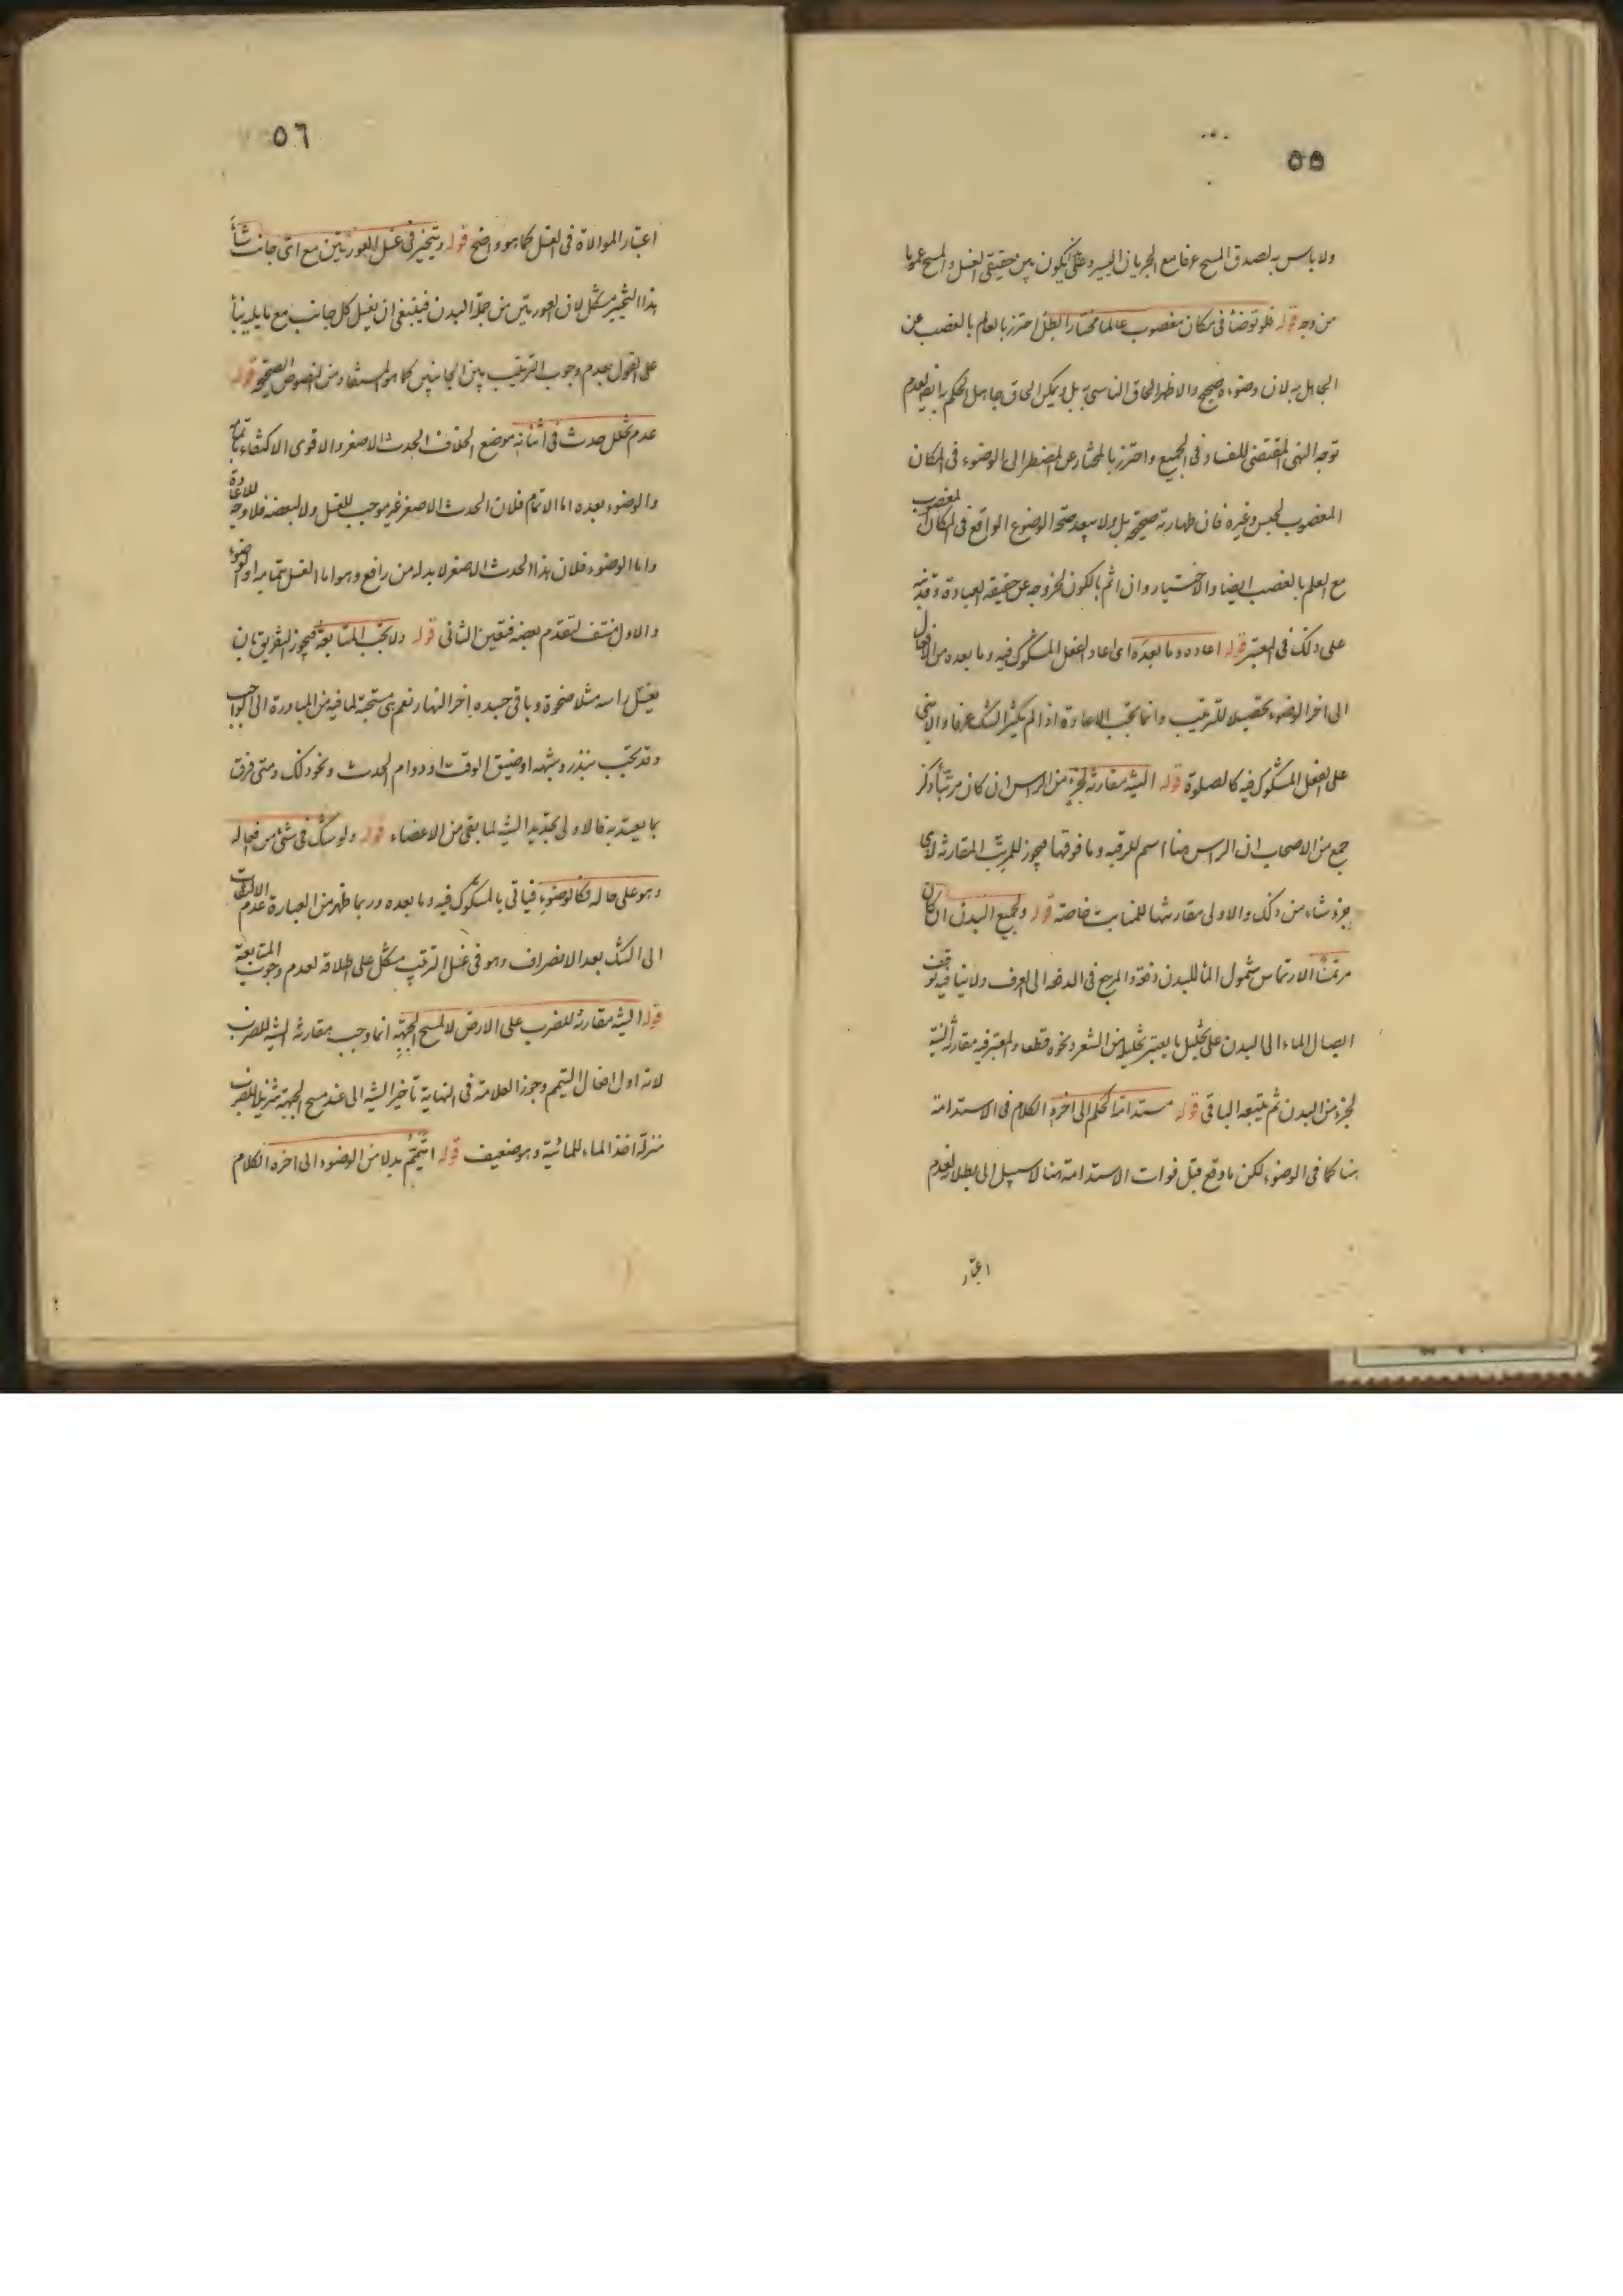 ٥٥
ولا باس به لصدق المسح عرفا مع الجريان اليسير وعلى يكون بين حقيقتى الغسل والمسح عموما
من وجه قوله فلو توضأ فى مكان مغصوب عالما مختارا بطل احترز بالعالم بالغصب عن
الجاهل به لان وضوءه صحيح والاظهر الحاق الناسى به بل ويمكن الحاق جاهل الحكم به ايضا لعدم
توجه النهى المقتضى للفساد فى الجميع واحترز بالمختار عن المضطر الى الوضوء فى المكان
المغصوب لحبس وغيره فان طهارته صحيحة بل ولا يبعد صحة الوضوء الواقع فى المكان المغصوب
مع العلم بالغصب ايضا والاختيار وان اثم بالكون لخروجه عن حقيقة العبادة وقد نبه
على ذلك فى المعتبر قوله اعاده وما بعده اى اعاد الفعل المشكوك فيه وما بعده من الافعال
الى اخر الوضوء تحصيلا للترتيب وانما تجب الاعادة اذا لم يكثر الشك عرفا والا بنى
على الفعل المشكوك فيه كالصلوة قوله النية مقارنة لجزء من الراس ان كان مرتبا ذكر
جمع من الاصحاب ان الراس هنا اسم للرقبة وما فوقها فيجوز للمرتب المقارنة لاى
جزء شاء من ذلك والاولى مقارنتها للمنابت خاصة قوله ولجميع البدن ان كان
مرتمسا الارتماس شمول الماء للبدن دفعة والمرجع فى الدفعة الى العرف ولا ينافيه توقف
ايصال الماء الى البدن على تخليل ما يعتبر تخليله من الشعر ونحوه قطعا والمعتبر فيه مقارنة النية
لجزء من البدن ثم يتبعه الباقى قوله مستدامة الحكم الى اخره الكلام فى الاستدامة
هنا كما فى الوضوء لكن ما وقع قبل فوات الاستدامة هنا لا سبيل الى بطلانه لعدم
اعتبار
٥٦
اعتبار الموالاة فى الغسل كما هو واضح قوله ويتخير فى غسل العورتين مع اى جانب شاء
هذا التخيير مشكل لان العورتين من جملة البدن فينبغى ان يغسل كل جانب مع ما يليه بناء
على القول بعدم وجوب الترتيب بين الجانبين كما هو المستفاد من النصوص الصحيحة قوله
عدم تخلل حدث فى اثنائه موضع الخلاف الحدث الاصغر والاقوى الاكتفاء باتمامه
والوضوء بعده اما الاتمام فلان الحدث الاصغر غير موجب للغسل ولا لبعضه فلا وجه للاعادة
واما الوضوء فلان هذا الحدث الاصغر لا بد له من رافع وهو اما الغسل بتمامه او الوضوء
والاول منتف لتقدم بعضه فتعين الثانى قوله ولا تجب المتابعة فيجوز التفريق بان
يغسل راسه مثلا ضحوة وباقى جسده اخر النهار نعم هى مستحبة لما فيه من المبادرة الى الواجب
وقد تجب بنذر وشبهه او ضيق الوقت او دوام الحدث ونحو ذلك ومتى فرق
بما يعتد به فالاولى تجديد النية لما بقى من الاعضاء قوله ولو شك فى شئ من افعاله
وهو على حاله فكالوضوء فياتى بالمشكوك فيه وما بعده وربما ظهر من العبارة عدم الالتفات
الى الشك بعد الانصراف وهو فى غسل الترتيب مشكل على اطلاقه لعدم وجوب المتابعة
قوله النية مقارنة للضرب على الارض لا لمسح الجبهة انما وجب مقارنة النية للضرب
لانه اول افعال التيمم وجوز العلامة فى النهاية تأخير النية الى عند مسح الجبهة تنزيلا للضرب
منزلة اخذ الماء للمائية وهو ضعيف قوله اتيمم بدلا من الوضوء الى اخره الكلام